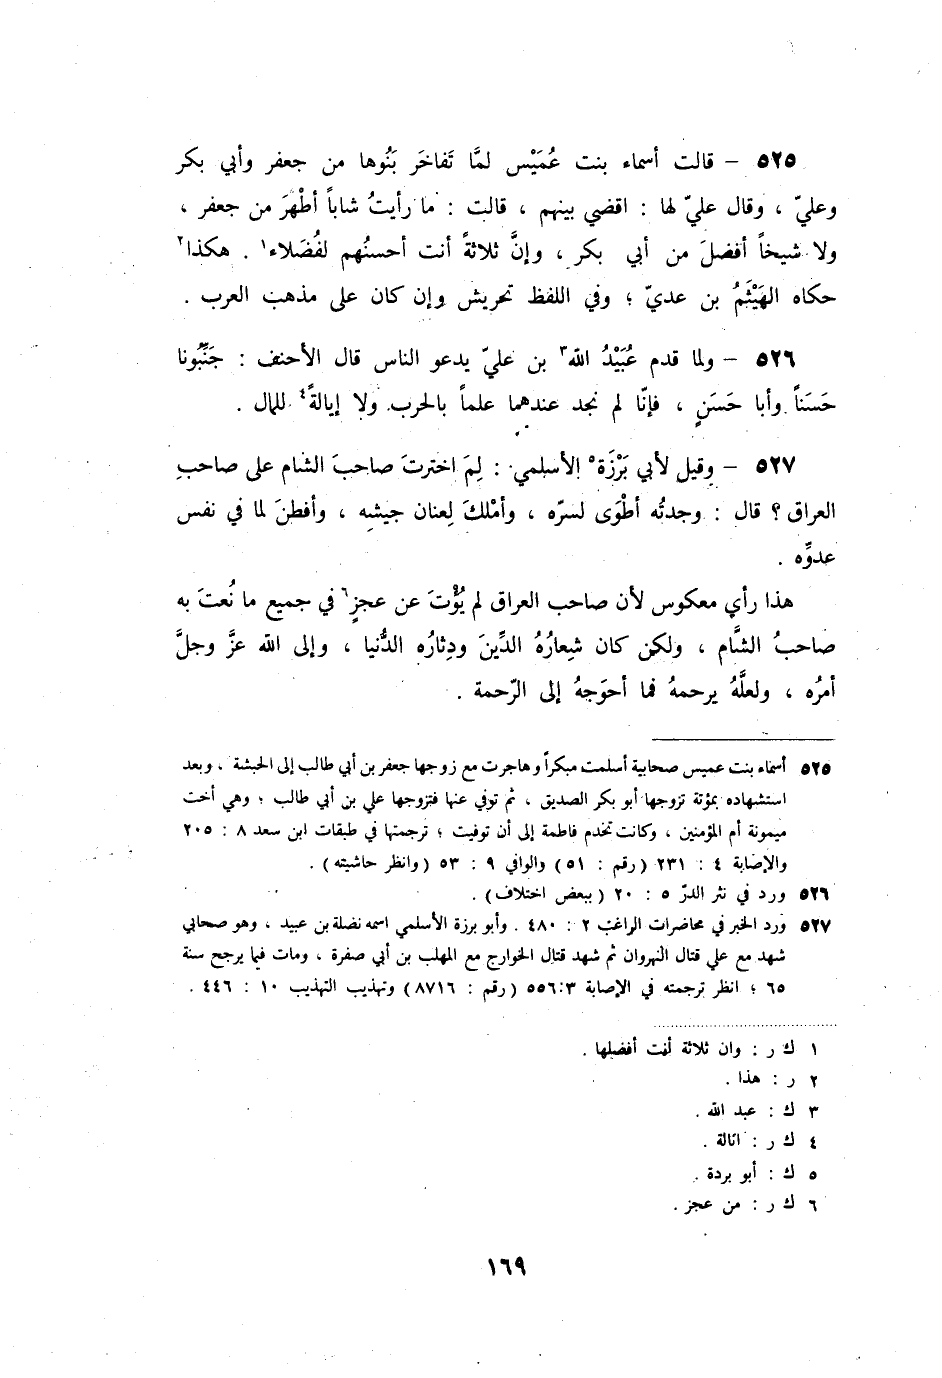 ٥٢٥ – قالت أسماء بنت عُمَيْس لمَّا تَفاخَر بَنُوها من جعفر وأبي بكر
وعليّ ، وقال عليّ لها : اقضي بينهم ، قالت : ما رأيتُ شاباً أطْهرَ من جعفر ،
ولا شيخاً أفضلَ من أبي بكر ، وإنَّ ثلاثةً أنت أحسنُهم لفُضَلاء١ . هكذا٢
حكاه الهَيْثَمُ بن عديّ ؛ وفي اللفظ تحريش وإن كان على مذهب العرب .
٥٢٦ – ولما قدم عُبَيْدُ الله٣ بن عليّ يدعو الناس قال الأحنف : جَنِّبُونا
حَسَناً وأبا حَسَنٍ ، فإنّا لم نجد عندهما علماً بالحرب ولا إيالةً٤ للمال .
٥٢٧ – وقيل لأبي بَرْزَة٥ الأسلمي : لِمَ اخترتَ صاحبَ الشام على صاحبِ
العراق ؟ قال : وجدتُه أطْوَى لسرّه ، وأمْلكَ لِعنان جيشه ، وأفطنَ لما في نفس
عدوِّه .
هذا رأي معكوس لأن صاحب العراق لم يُؤْتَ عن عجزٍ٦ في جميع ما نُعتَ به
صاحبُ الشَّام ، ولكن كان شِعارُهُ الدِّينَ ودِثارُه الدُّنيا ، وإلى الله عزَّ وجلَّ
أمرُه ، ولعلَّهُ يرحمهُ فما أحوَجهُ إلى الرّحمة .
٥٢٥ أسماء بنت عميس صحابية أسلمت مبكراً وهاجرت مع زوجها جعفر بن أبي طالب إلى الحبشة ، وبعد
استشهاده بمؤتة تزوجها أبو بكر الصديق ، ثم توفي عنها فتزوجها علي بن أبي طالب ؛ وهي أخت
ميمونة أم المؤمنين ، وكانت تخدم فاطمة إلى أن توفيت ؛ ترجمتها في طبقات ابن سعد ٨ : ٢٠٥
والإصابة ٤ : ٢٣١ (رقم : ٥١) والوافي ٩ : ٥٣ (وانظر حاشيته) .
٥٢٦ ورد في نثر الدرّ ٥ : ٢٠ (ببعض اختلاف) .
٥٢٧ ورد الخبر في محاضرات الراغب ٢ : ٤٨٠ . وأبو برزة الأسلمي اسمه نضلة بن عبيد ، وهو صحابي
شهد مع علي قتال النهروان ثم شهد قتال الخوارج مع المهلب بن أبي صفرة ، ومات فيما يرجح سنة
٦٥ ؛ انظر ترجمته في الإصابة ٣:٥٥٦ (رقم : ٨٧١٦) وتهذيب التهذيب ١٠ : ٤٤٦ .
١ ك ر : وان ثلاثة أنت أفضلها .
٢ ر : هذا .
٣ ك : عبد الله .
٤ ك ر : اثالة .
٥ ك : أبو بردة .
٦ ك ر : من عجز .
١٦٩